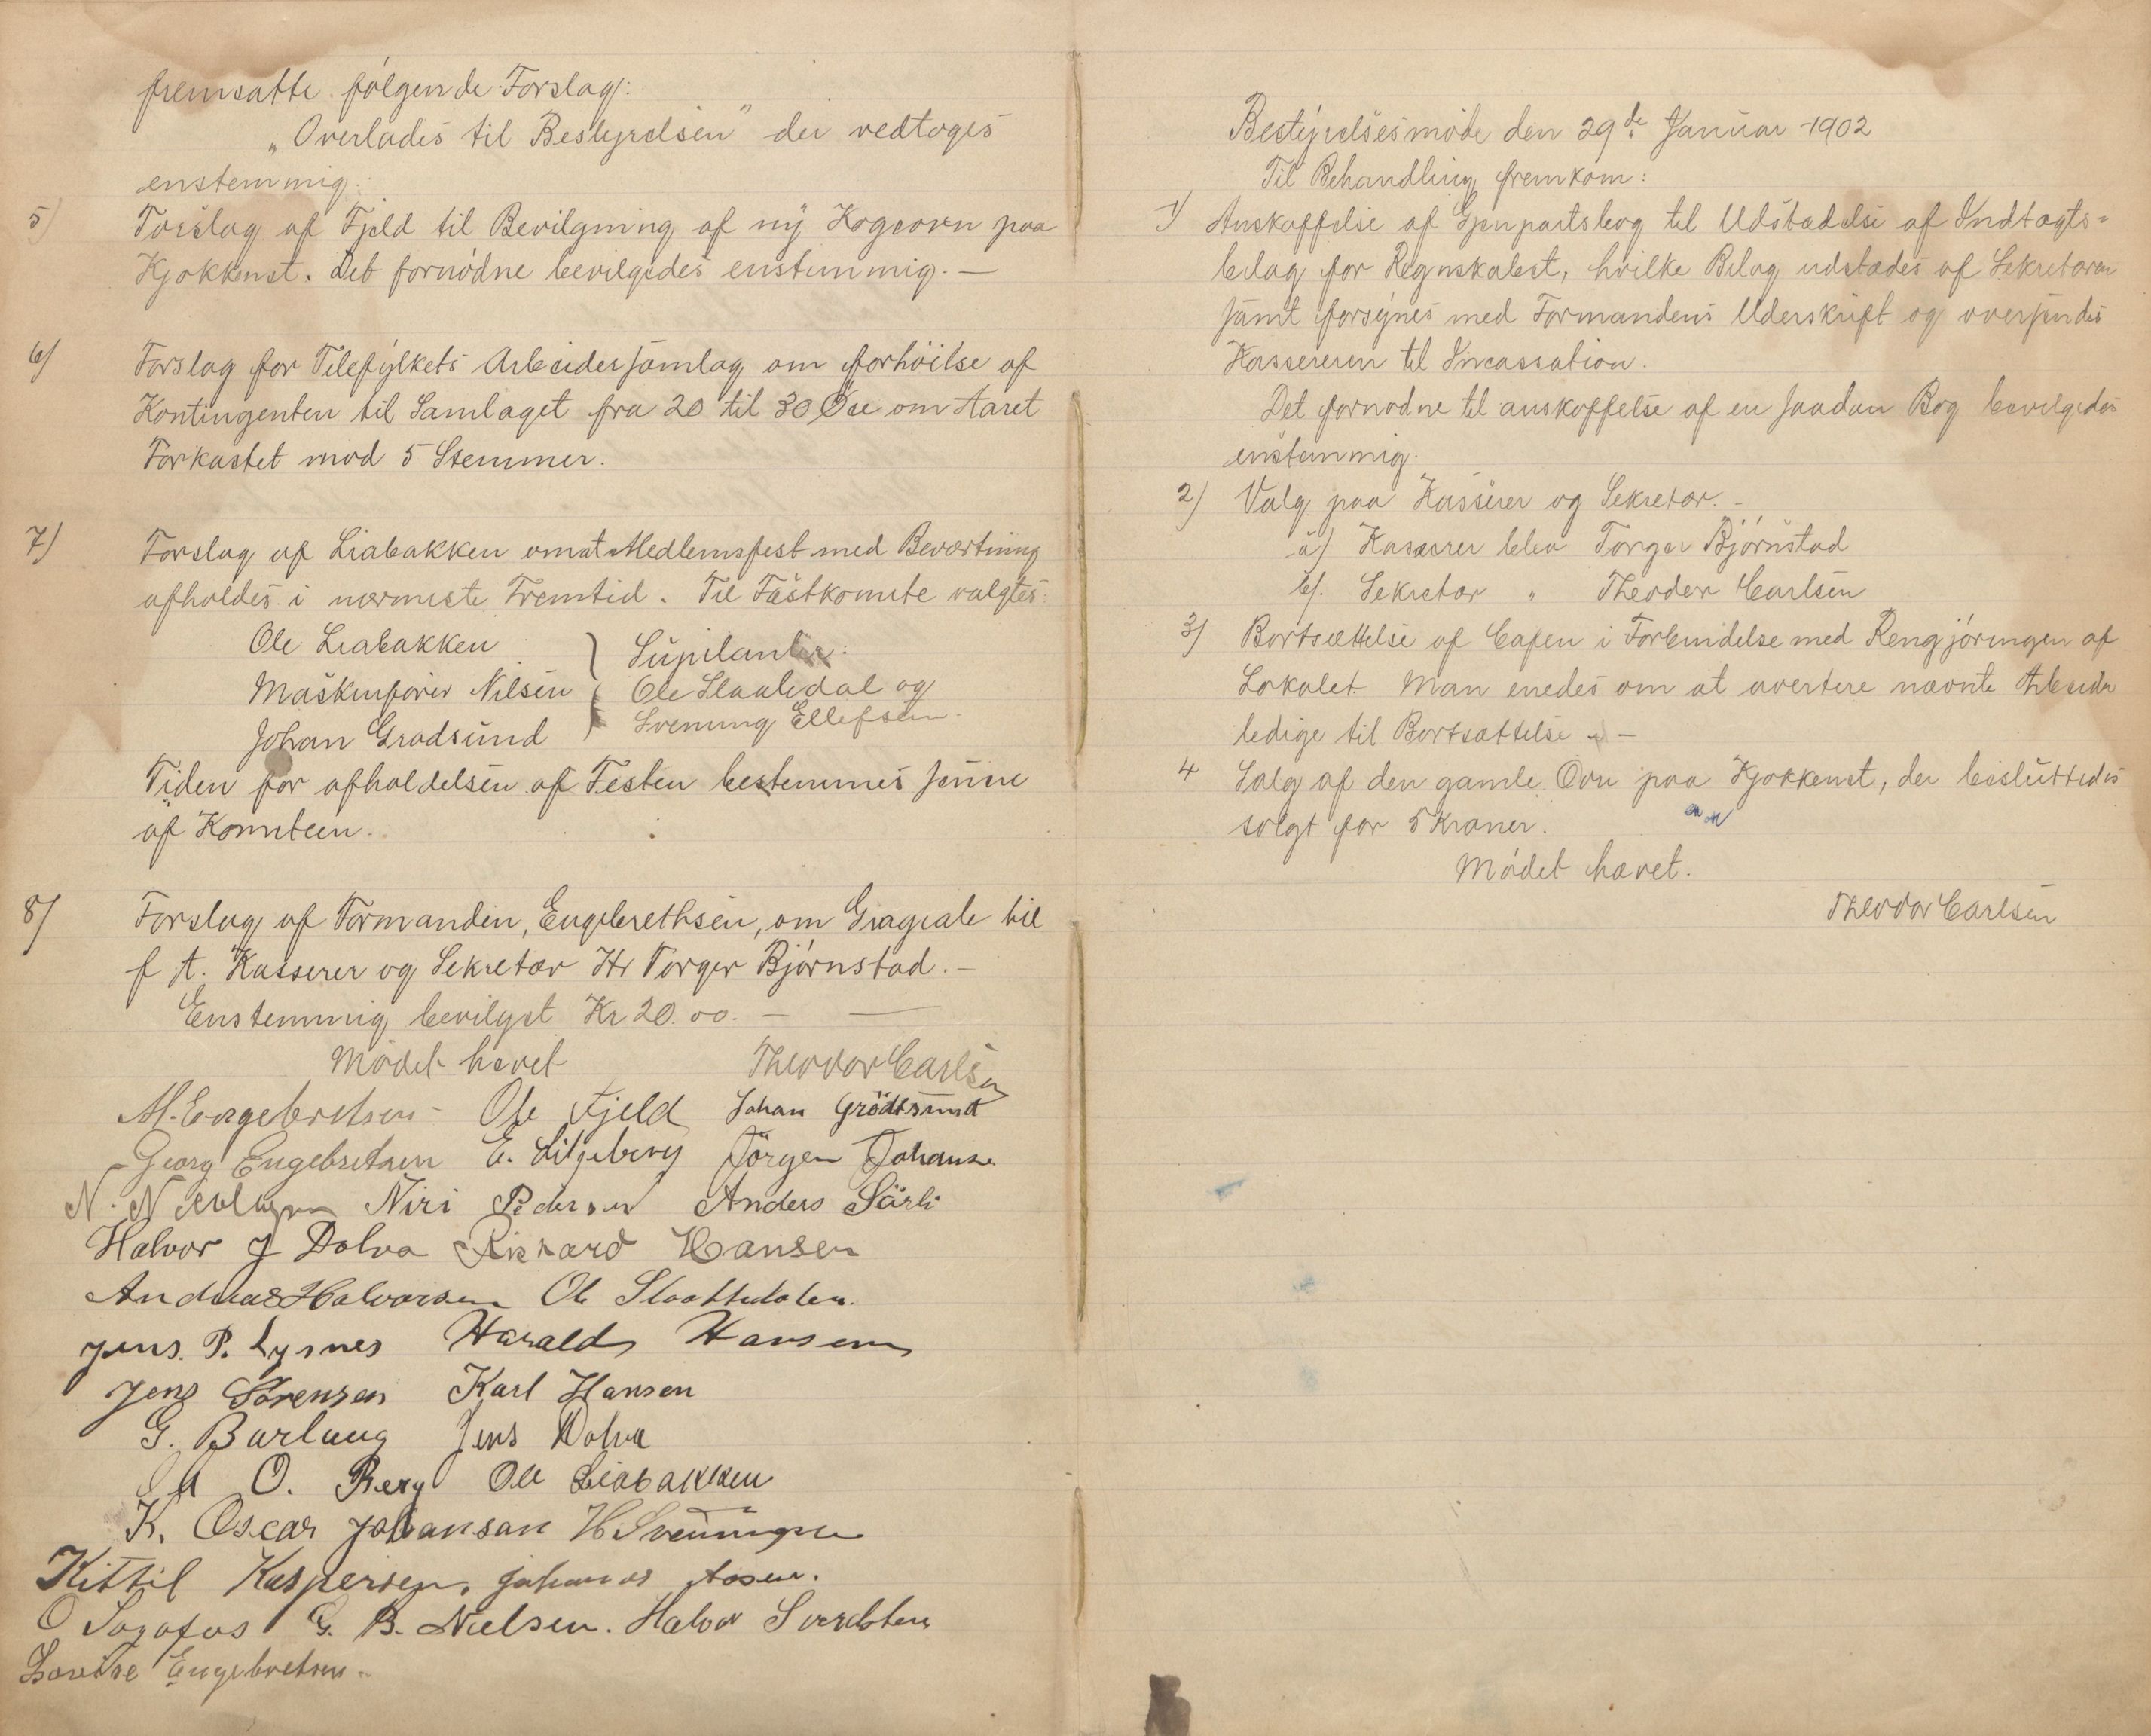 fremsatte følgende Forslag:
„Overlades til Bestyrelsen" der vedtoges
enstemmig.
5) Forslag af Fjeld til Bevilgning af ny Kogeovn paa
Kjøkkenet. Det fornødne bevilgedes enstemmig. —
6) Forslag for Telefylkets Arbeidersamlag om forhøilse af
Kontingenten til Samlaget fra 20 til 30 Øre om Aaret
Forkastet mod 5 Stemmer.
7) Forslag af Liabakken om at Medlemsfest med Beværtning
afholdes i nærmeste Fremtid. Til Fæstkomite valgtes:
Ole Liabakken } Suplanter:
Maskinfører Nilsen Ole Slaatedal og
Johan Grødsund Svenung Ellefsen.
Tiden for afholdelsen af Festen bestemmes senere
af Komiteen.
8) Forslag af Formanden, Engebrethsen, om Gragiale til
f A. Kasserer og Sekretær Hr Torger Bjørnstad. —
Enstemmig bevilget Kr 20.00. — —
Mødet hævet Theodor Carlsen
M. Engebretsen - Ole Fjeld Johan Grödtsund
Georg Engebretsen E. Liljeberg Jörgen Johanse
N. Niri Pedersen Anders Särli
Halvor J Dolva Rikard Hansen
Andreas Halvorsen Ole Slaattedalen.
Jens. P. Lysnes Harald Hansen
Jens Sörensen Karl Hansen
G. Barlaug Jens Dolva
O. Berg Ole Liabakken
K. Oscar Johansan H Svenningsen
Kittil Kaspersen. Johannes Aasen.
O Sagafos G. B. Nielsen. Halvor
Lovise Engebretsen -
Bestyrelsesmøde den 29de Januar 1902
Til Behandling fremkom:
1) Anskaffelse af Gjenpartsbog til Udstædelse af Indtægts=
bilag for Regnskabet, hvilke Bilag udstædes af Sekretæren
samt forsynes med Formandens Uderskrift og oversendes
Kassereren til Incassation.
Det fornødne til anskaffelse af en saadan Bog bevilgedes
enstemmig.
2) Valg paa Kasserer og Sekretær. —
a) Kasserer blev Torger Bjørnstad
b). Sekretær " Theodor Carlsen
3) Bortsættelse af Cafeen i Forbindelse med Rengjøringen af
Lokalet. Man enedes om at avertere nævnte Arbeider
ledige til Bortsættelse - —
4 Salg af den gamle Ovn paa Kjøkkenet, der besluttedes
solgt for 5 Kroner.
Mødet hævet.
Theodor Carlsen